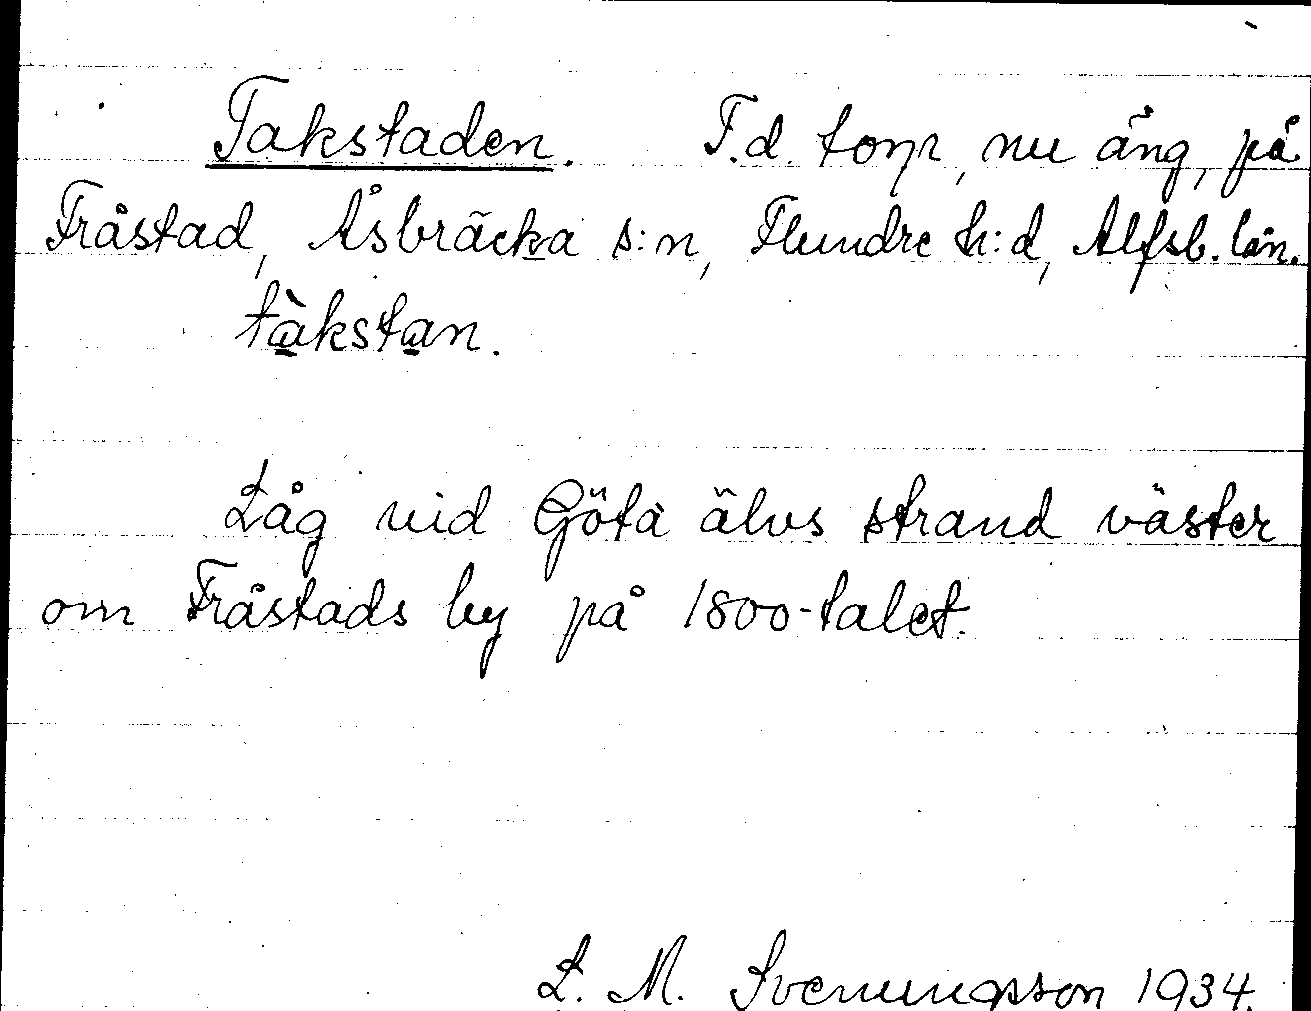 Takstaden. F.d. torp, nu äng, på
Fråstad, Åsbräcka s:n, Flundre h:d, Alfsb. län.
tàkstan.
Låg vid Göta älvs strand väster
om Fråstads by på 1800-talet.
L. M. Svenungsson 1934.